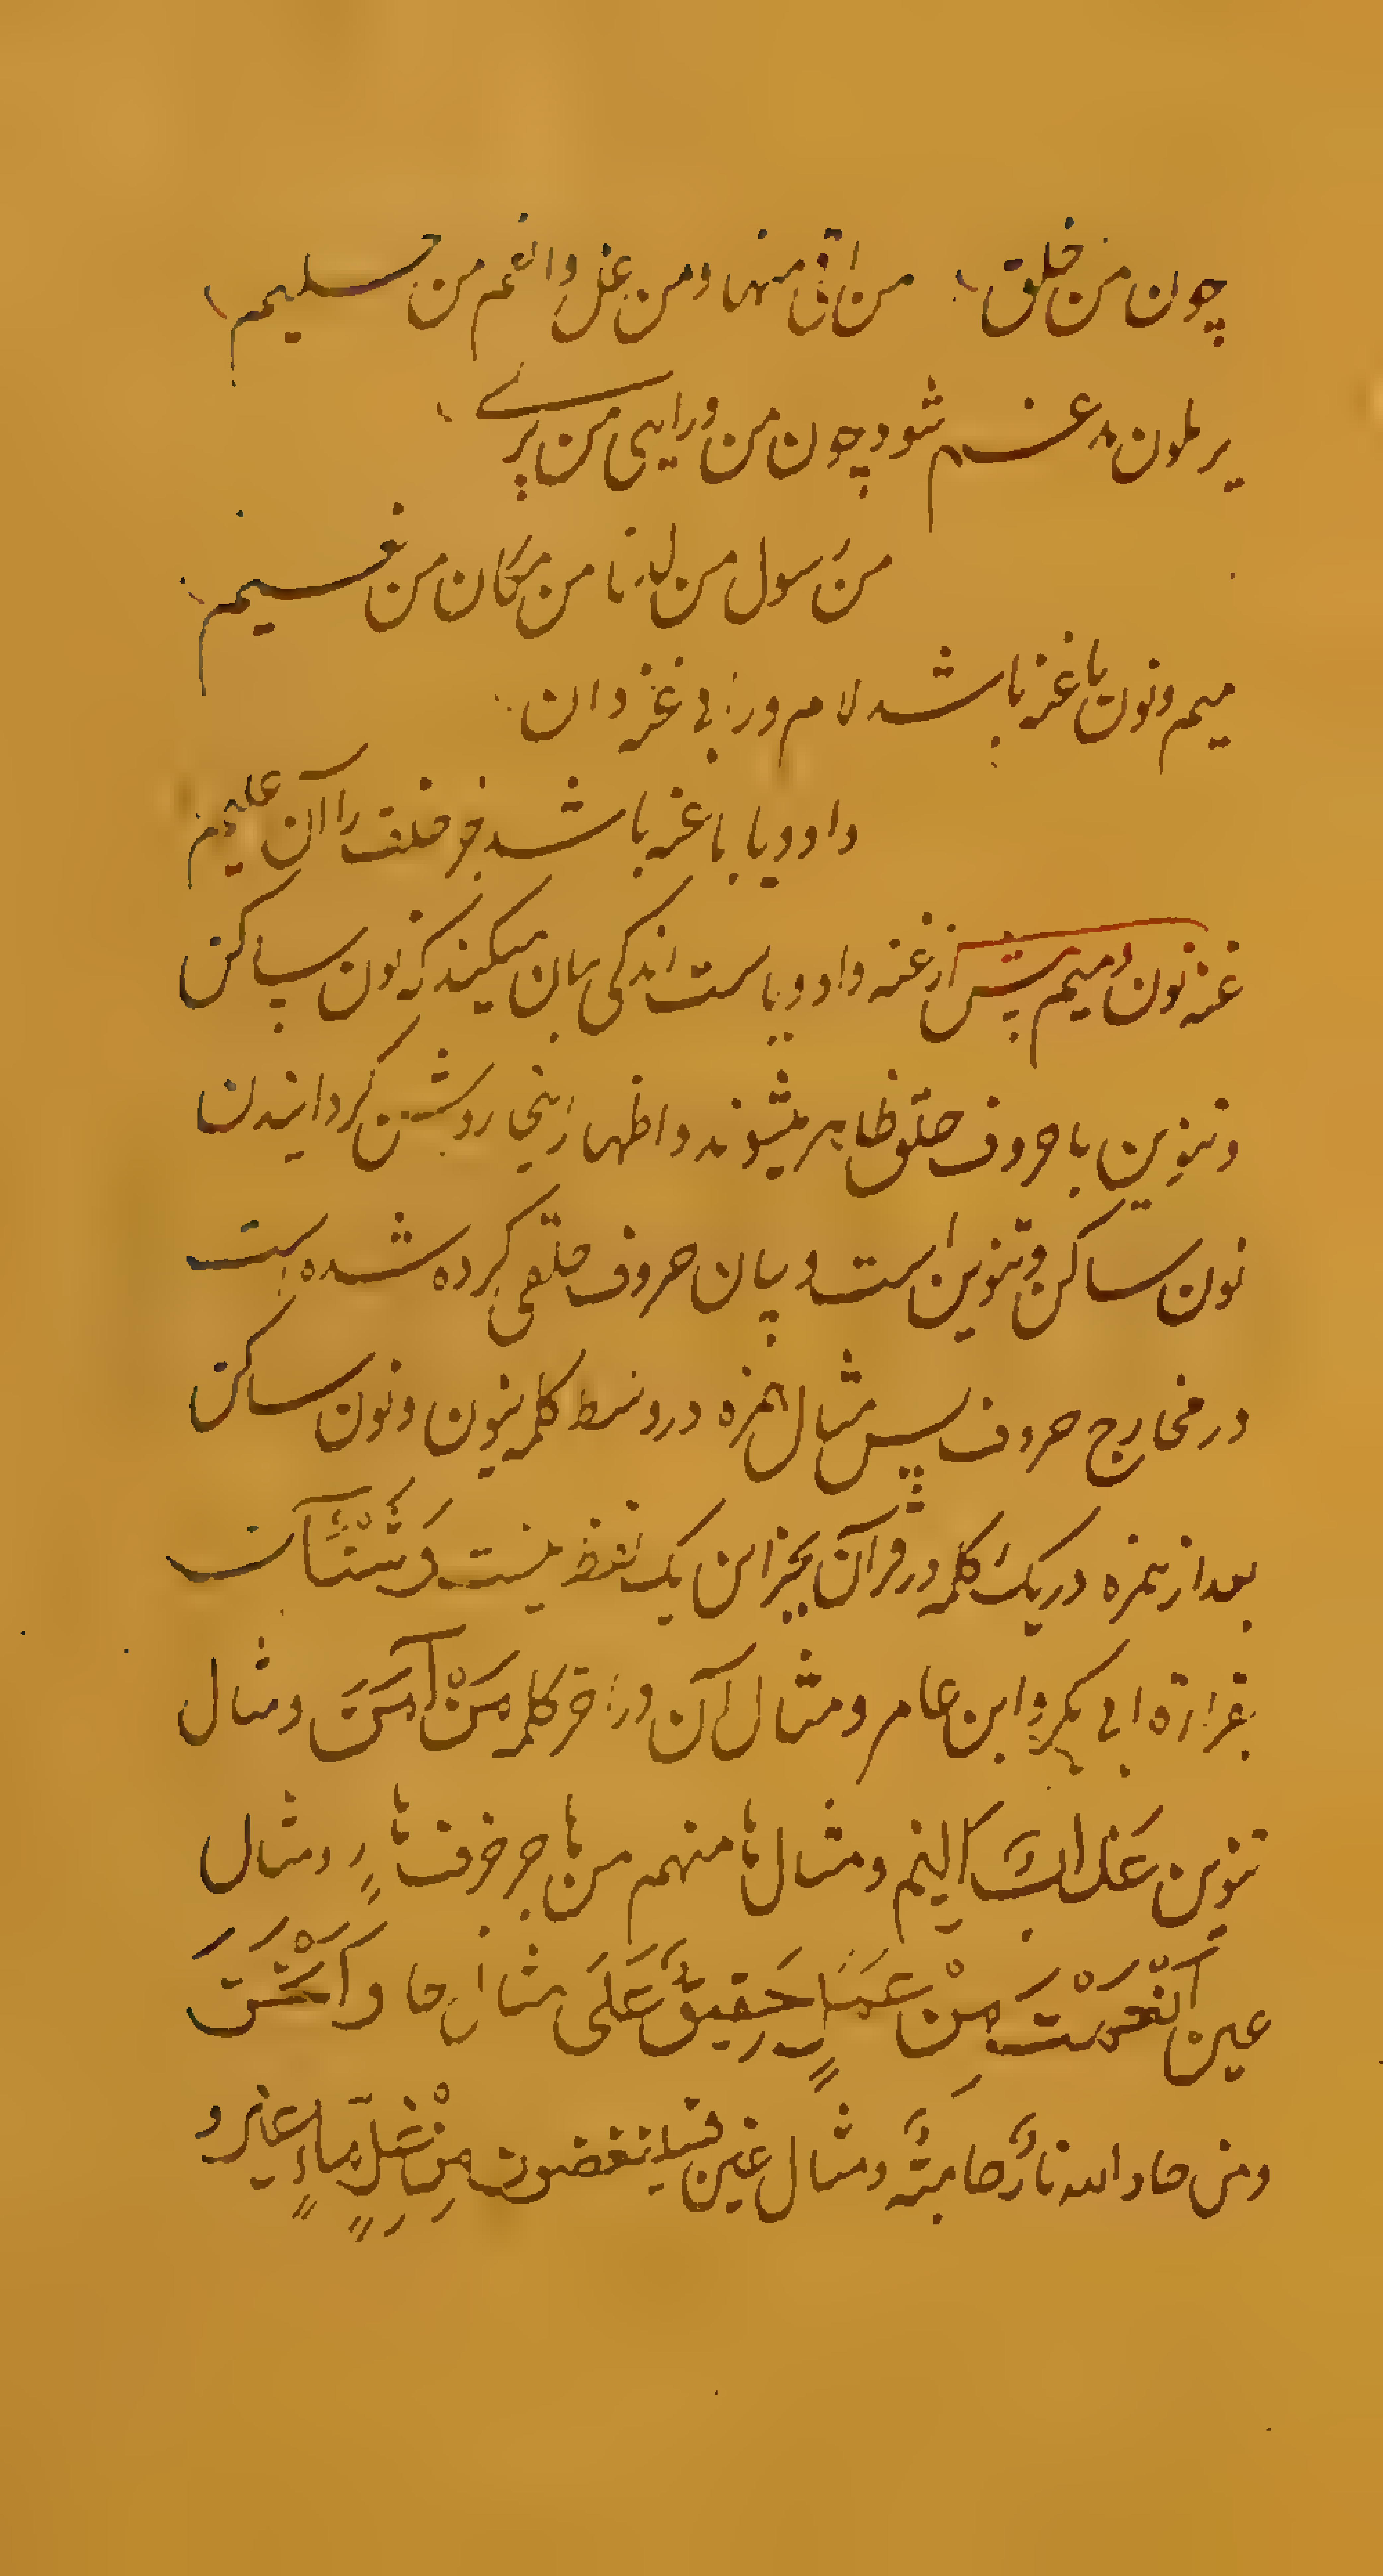 چون من خلق من اتی منها و من غل وانعم من حسلیم
یرملون مدغم شود چون من ورایی من یری
من رسول من لدنا من مکان من نعیم
میم و نون با غنه باشد لام و را بی غنه دان
واو و یا با غنه باشد جز خلف را آن علیم
غنه نون و میم پیش از غنه واو و یاست اندکی بیان میکند که نون ساکن
و تنوین با حروف حلق ظاهر میشوند و اظهار اینجا روشن گردانیدن
نون ساکن و تنوین است و بیان حروف حلقی کرده شده است
در مخارج حروف پس مثال همزه در وسط کلمه ینون و نون ساکن
بعد از همزه در یک کلمه در قرآن بجز این یک لفظ نیست وَشَنَآن
بقراءة ابی بکر و ابن عامر و مثال آن در آخر کلمه مَنْ آمَنَ و مثال
تنوین عذابٌ الیم و مثال ها منهم من هاجر جرف هارٍ و مثال
عین اَنْعَمْتَ مِنْ عَمَلٍ حَقیقٌ عَلَی مثال حا وَاَنْحَرْ
ومن حاد الله نارٌ حامیةٌ و مثال غین فسینغضون مِنْ غِلٍّ ماءٍ غیر و